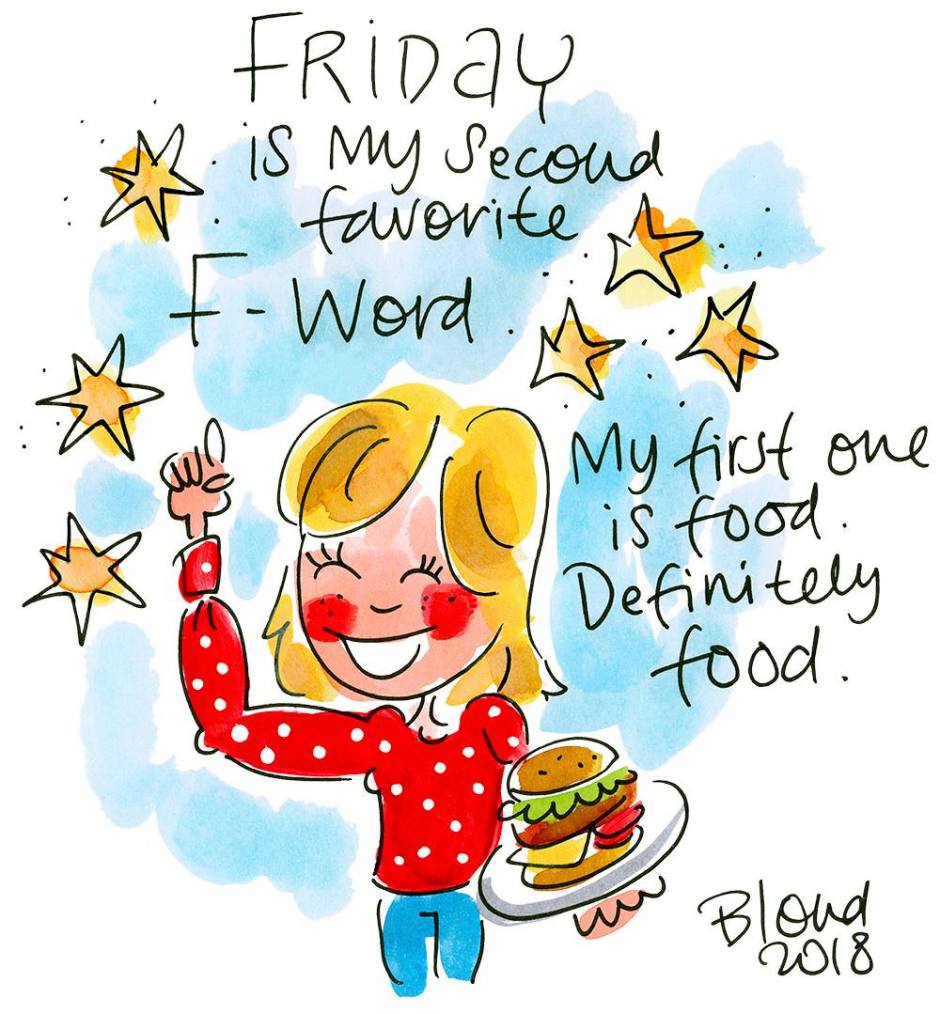 FRIDAY
is My Second
favorite
F-Word.
My first one
is food.
Definitely
food.
Blond
2018